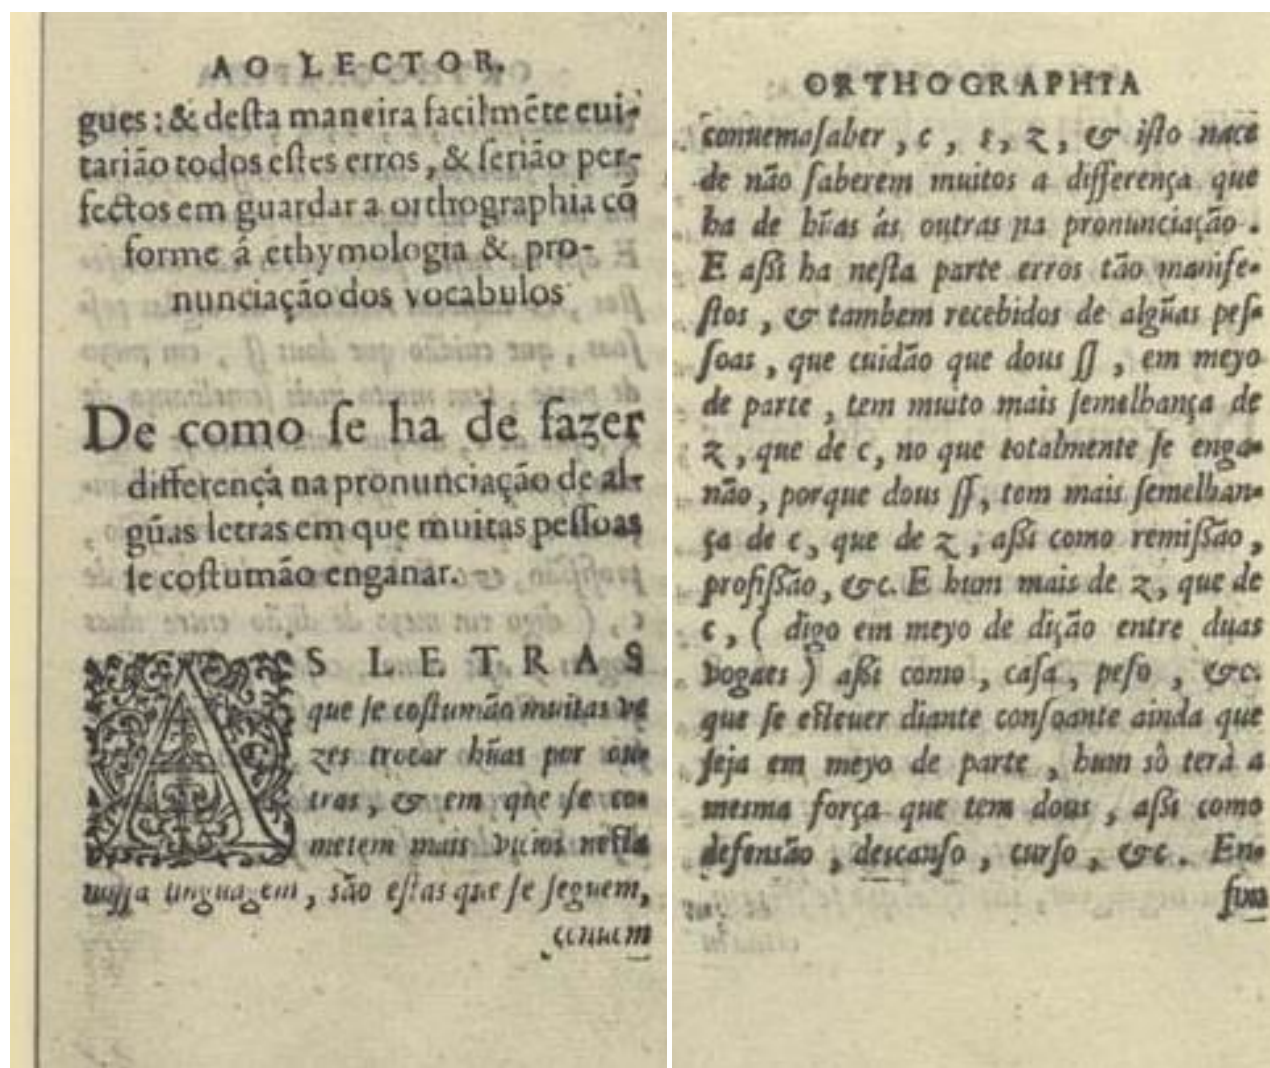 AO LECTOR.
gues : & deſta maneira facilmẽte eui-
tarião todos eſtes erros, & ſerião per-
fectos em guardar a orthographia cõ
forme á ethymologia & pro-
nunciação dos vocabulos
De como ſe ha de fazer
differença na pronunciação de al-
gũas letras em que muitas peſſoas
ſe coſtumão enganar.
AS LETRAS
que ſe coſtumão muitas ve
zes trocar hũas por ou-
tras, & em que ſe co-
metem mais vicios neſta
noſſa linguagem, são eſtas que ſe ſeguem,
conuem
ORTHOGRAPHIA
conuemaſaber, c, s, z, & iſto nace
de não ſaberem muitos a differença que
ha de hũas ás outras na pronunciação.
E aſsi ha neſta parte erros tão manife-
ſtos, & tambem recebidos de algũas peſ-
ſoas, que cuidão que dous ſſ, em meyo
de parte, tem muito mais ſemelhança de
z, que de c, no que totalmente ſe enga-
não, porque dous ſſ, tem mais ſemelhan-
ça de c, que de z, aſsi como remiſſão,
profiſſão, &c. E hum mais de z, que de
c, ( digo em meyo de dição entre duas
vogaes ) aſsi como, caſa, peſo, &c.
que ſe eſteuer diante conſoante ainda que
ſeja em meyo de parte, hum sò terà a
mesma força que tem dous, aſsi como
defensão, descanſo, curſo, &c. En-